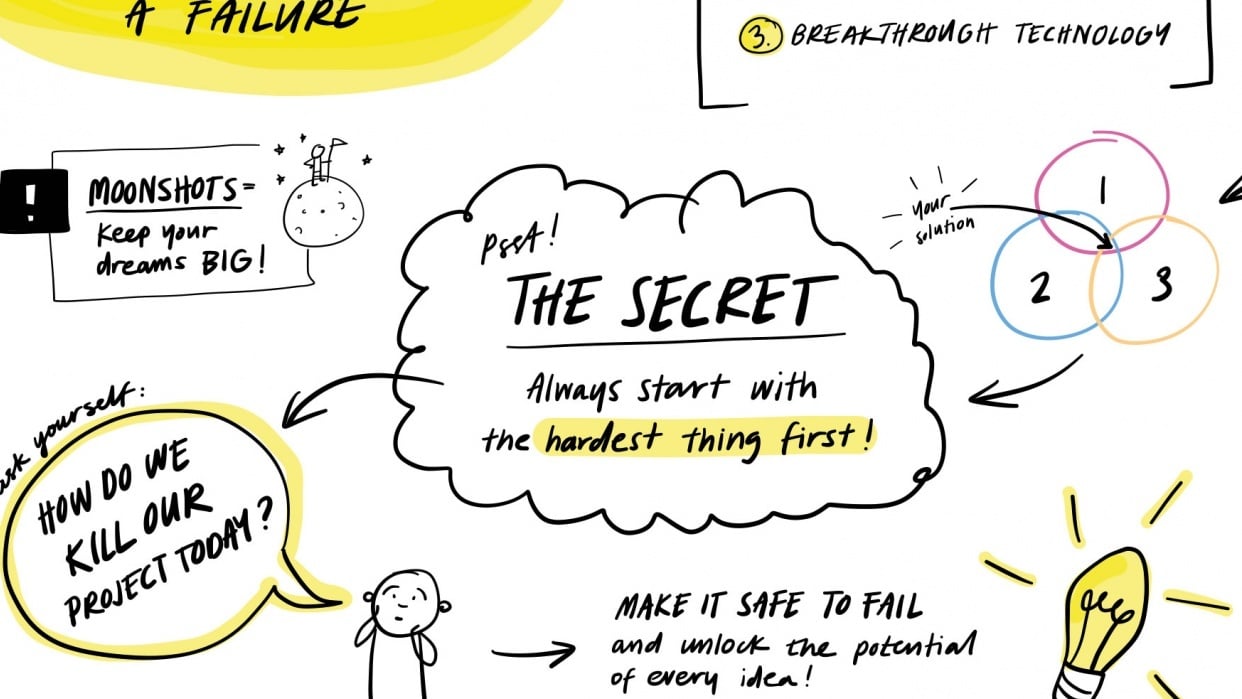 A FAILURE
3. BREAKTHROUGH TECHNOLOGY
!
MOONSHOTS=
Keep your
dreams BIG!
psst!
THE SECRET
Always start with
the hardest thing first!
your
solution
1
2
3
ask yourself:
HOW DO WE
KILL OUR
PROJECT TODAY?
MAKE IT SAFE TO FAIL
and unlock the potential
of every idea!